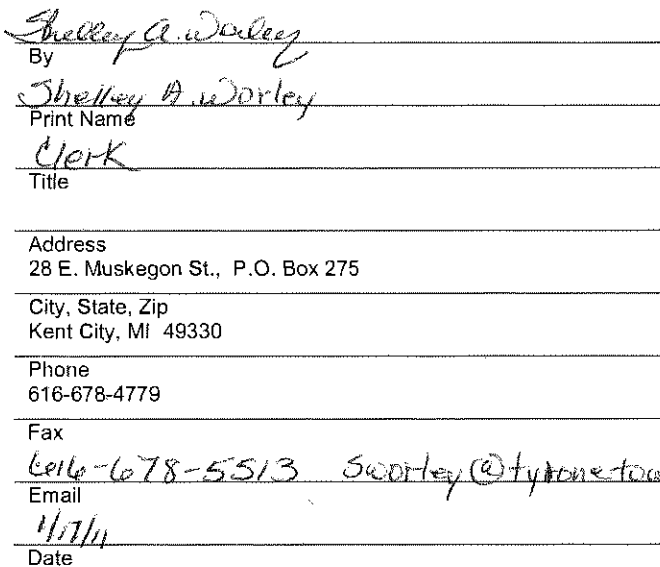 Shelley A. Worley
By
Shelley A. Worley
Print Name
Clerk
Title
Address
28 E. Muskegon St., P.O. Box 275
City, State, Zip
Kent City, MI 49330
Phone
616-678-4779
Fax
616-678-5513 sworley@tyronetow
Email
1/17/11
Date